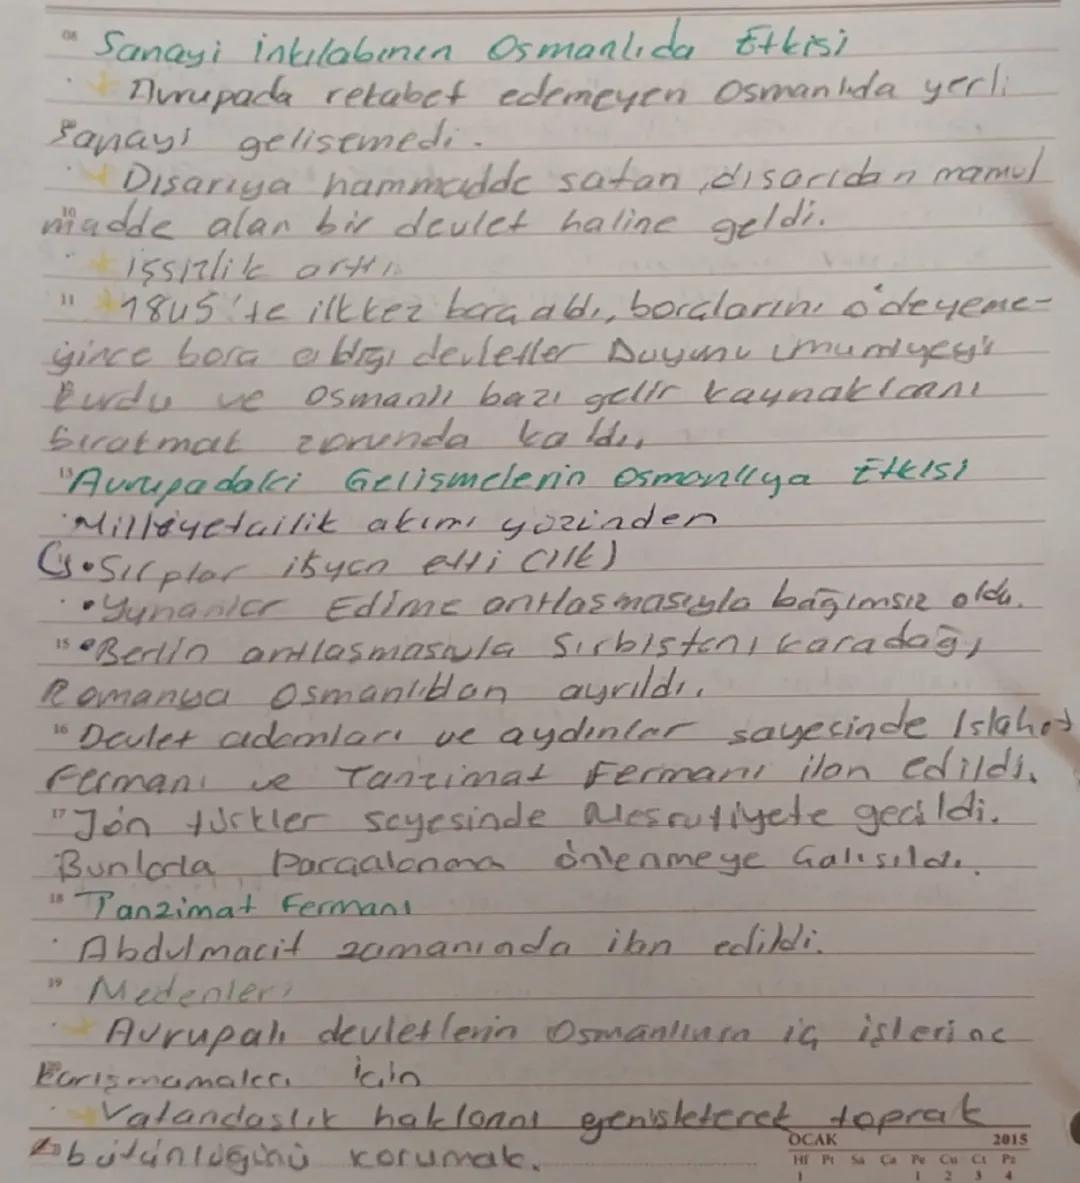 08 Sanayi inkılabının Osmanlıda Etkisi
Avrupada rekabet edemeyen Osmanlıda yerli
Sanayi gelisemedi.
Dısarıya hammadde satan, dısarıdan mamul
10 madde alan bir devlet haline geldi.
işsizlik arttı.
11 1845'te ilk kez borç aldı, borçlarını ödeyeme-
yince borç aldığı devletler Duyunu umumiyeyi
kurdu ve Osmanlı bazı gelir kaynaklarını
bırakmak zorunda kaldı,
13 Avrupadaki Gelişmelerin Osmanlıya Etkisi
Milliyetcilik akımı yüzinden
• Sırplar isyan etti (ilk)
• Yunanlar Edirne antlasmasıyla bağımsız oldu.
15 • Berlin antlasmasıyla Sırbistan, karadağ,
Romanya Osmanlıdan ayrıldı.
16 Devlet adamları ve aydınlar sayesinde Islahat
Fermanı ve Tanzimat Fermanı ilan edildi.
17 Jön türkler sayesinde Mesrutiyete geçildi.
Bunlarla Parçalanma önlenmeye Çalısıldı.
18 Tanzimat Fermanı
Abdulmacit zamanında ilan edildi.
19 Nedenleri
Avrupalı devletlerin Osmanlının iç işlerine
karışmamaları için
Vatandaslık haklarını genisleterek toprak
bütünlüğünü korumak.
OCAK 2015
Hf Pt Sa Ça Pe Cu Ct Pz
1 1 2 3 4